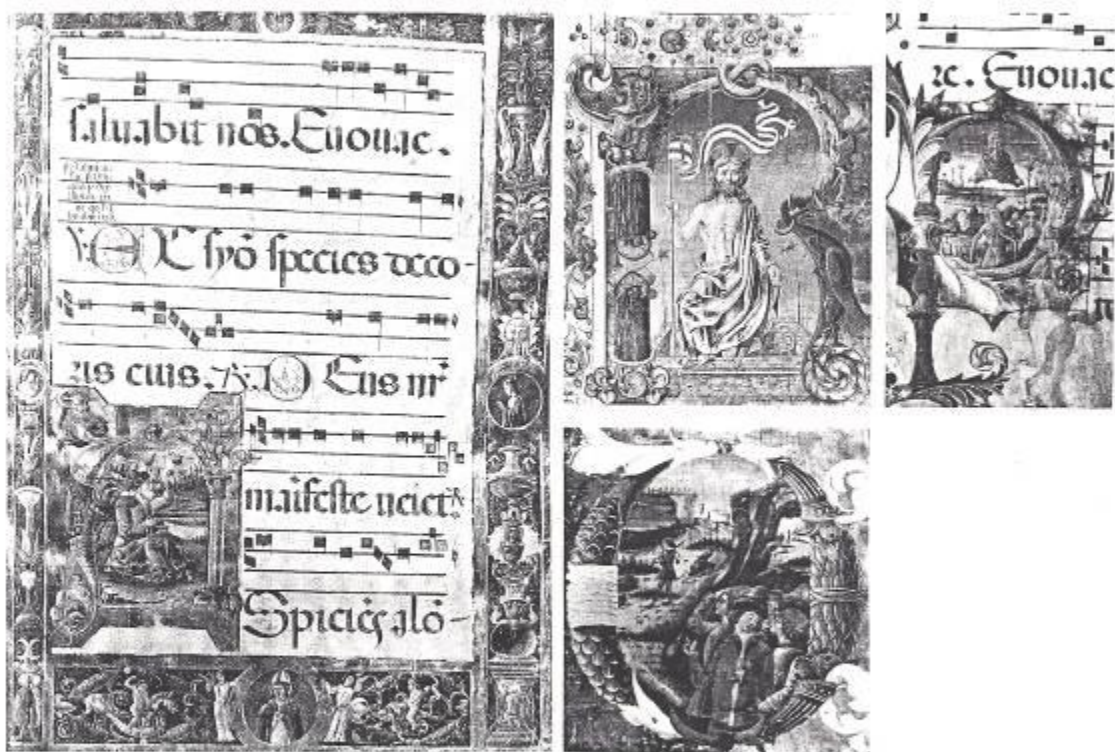 saluabit nos. Euouae.
Ex syō species deco-
ris eius. Deus nr̄
maifeste ueiet
Spiciēs alō-
ae. Euouae